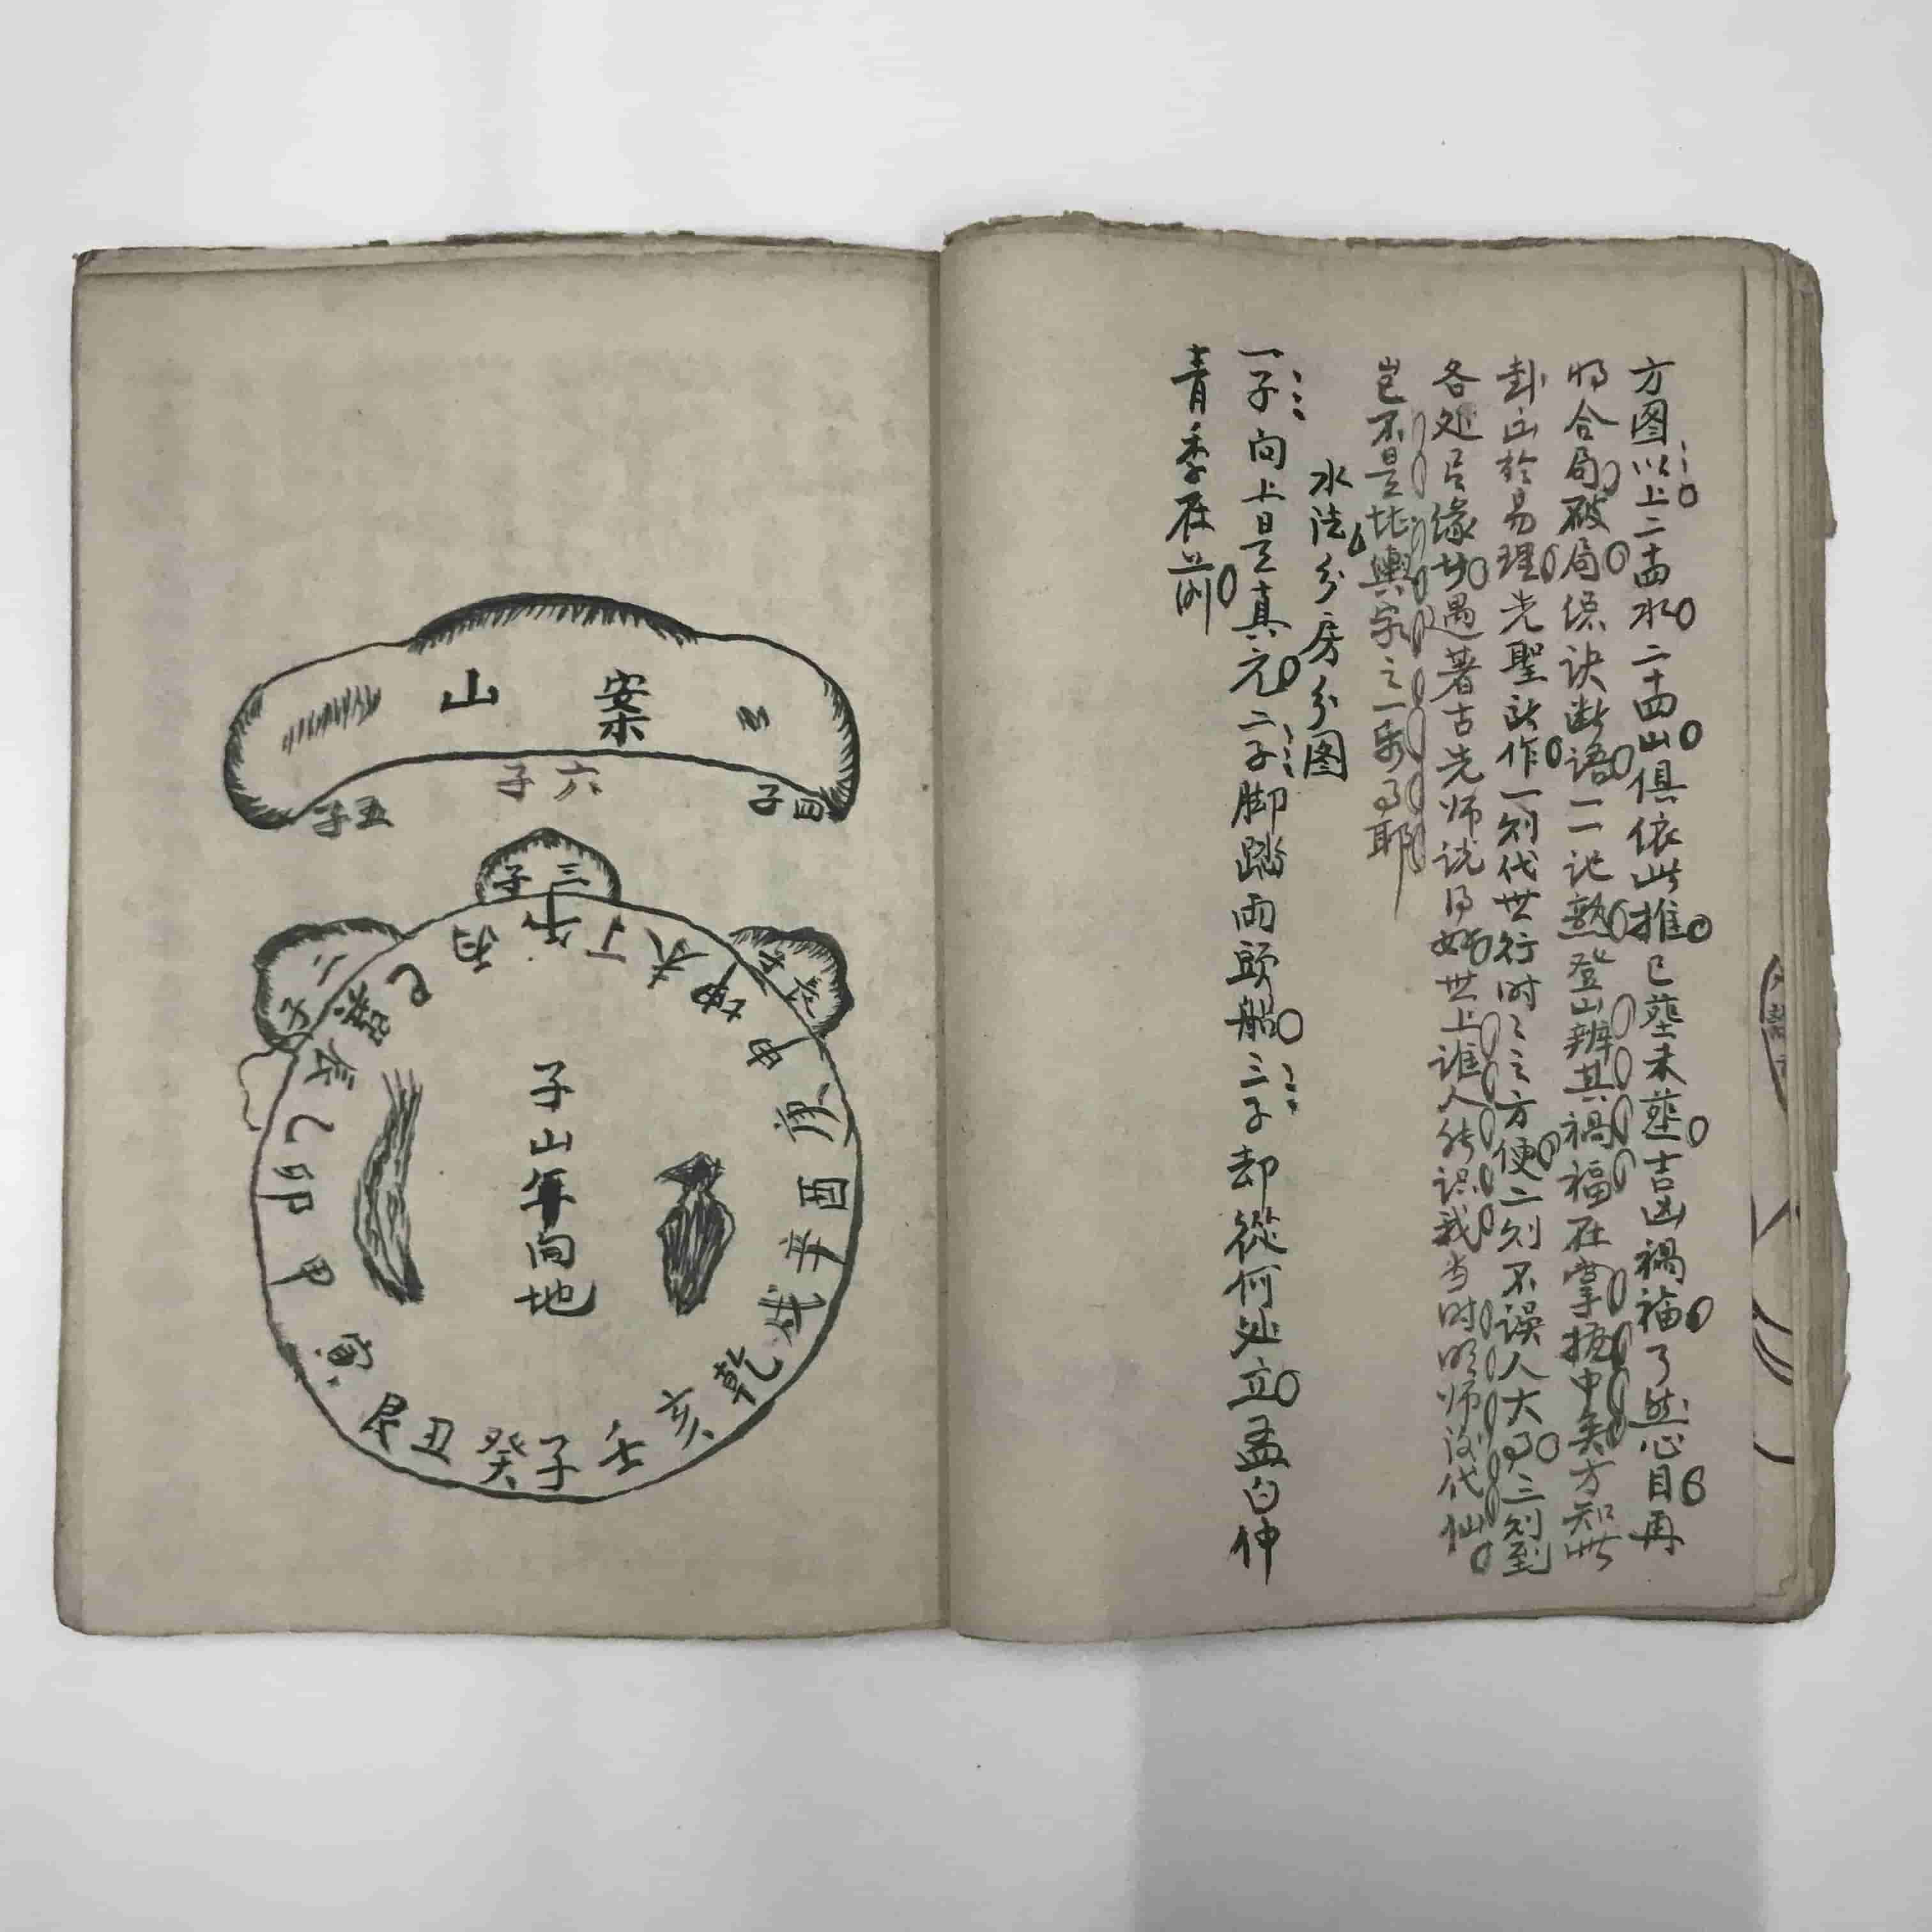 方图以上二十四水二十四山俱依此推已塟未塟吉凶禍福了然心目再
将合局破局倧诀断语一一记熟登山辨其禍福在掌握中矣方知此
卦出於易理先聖所作一则代世行时之方便二则不误人大事三则到
各处有缘坊遇著古先师说得好世上谁人能识我当时明师后代仙
岂不是堪輿家之一乐事耶
水法分房分图
一子向上是真元二子脚踏两頭船三子却從何处立孟白仲
青季在前
案山
四子
六子
五子
三子
二子
午丁未坤申庚酉辛戌乾亥壬子癸丑艮寅甲卯乙辰巽巳丙
子山午向地